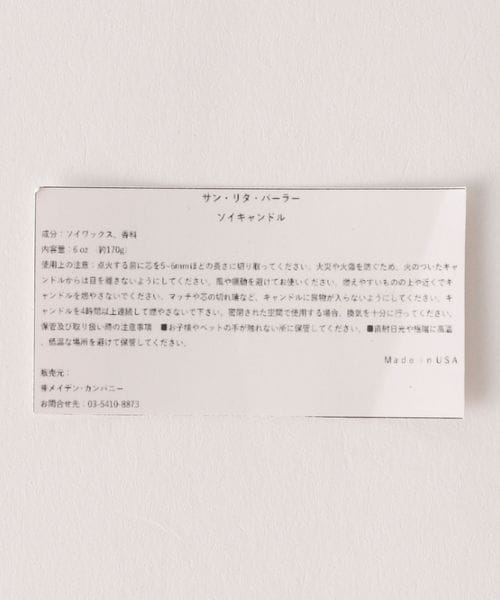 サン・リタ・パーラー
ソイキャンドル
成分：ソイワックス、香料
内容量：6 oz （約170g）
使用上の注意：点火する前に芯を5~6mmほどの長さに切り取ってください。火災や火傷を防ぐため、火のついたキャ
ンドルからは目を離さないようにしてください。風や振動を避けてお使いください。燃えやすいものの上や近くでキ
ャンドルを燃やさないでください。マッチや芯の切れ端など、キャンドルに異物が入らないようにしてください。キャ
ンドルを4時間以上連続して燃やさないで下さい。密閉された空間で使用する場合、換気を十分に行ってください。
保管及び取り扱い時の注意事項　■お子様やペットの手が触れない所に保管してください。■直射日光や極端に高温
、低温な場所を避けて保管してください。
Made in USA
販売元：
㈱メイデン・カンパニー
お問合せ先：03-5410-8873